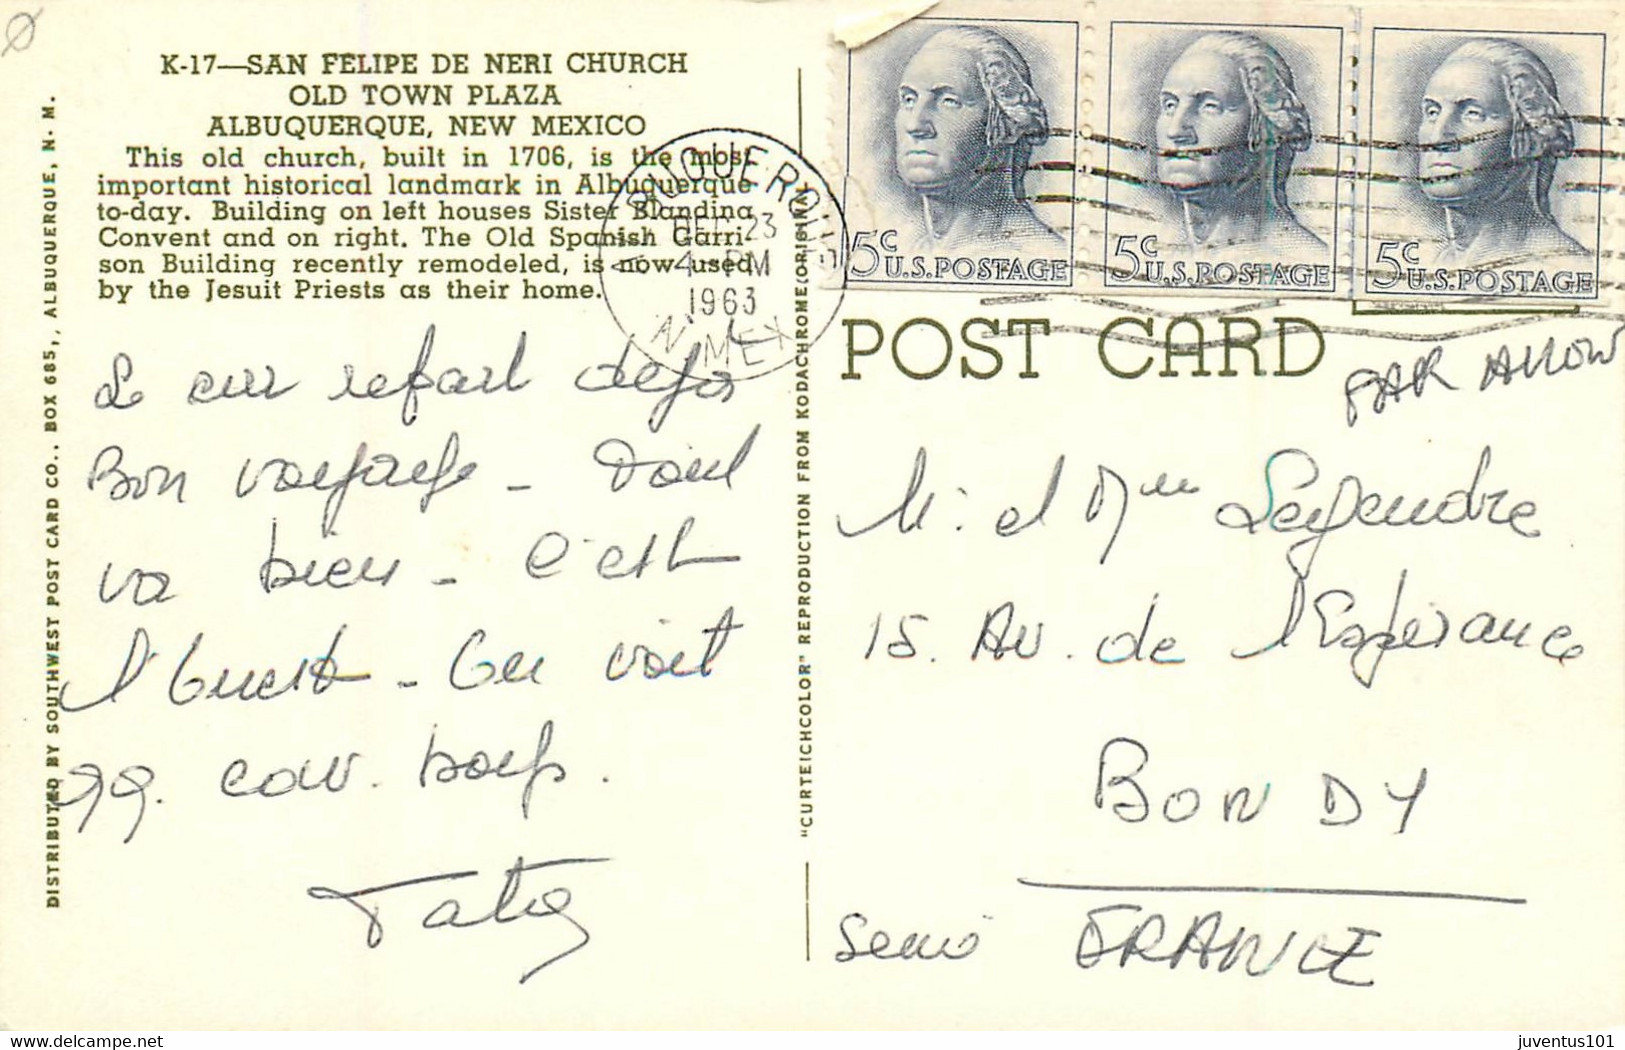 K-17—SAN FELIPE DE NERI CHURCH
OLD TOWN PLAZA
ALBUQUERQUE, NEW MEXICO
This old church, built in 1706, is the most
important historical landmark in Albuquerque
to-day. Building on left houses Sister Blandina
Convent and on right. The Old Spanish Garri-
son Building recently remodeled, is now used
by the Jesuit Priests as their home.
DISTRIBUTED BY SOUTHWEST POST CARD CO., BOX 685,, ALBUQUERQUE, N. M.
ALBUQUERQUE
23
4 - PM
1963
N. MEX
"CURTEICHCOLOR" REPRODUCTION FROM KODACHROME(ORIGINAL
5c U.S.POSTAGE
5c U.S.POSTAGE
5c U.S.POSTAGE
POST CARD
PAR
Bon
va bien - C'est
l'Ouest - On voit
99. cow. boys.
M. et Mme Legendre
15. Av. de l'Espérance
BONDY
FRANCE
juventus101